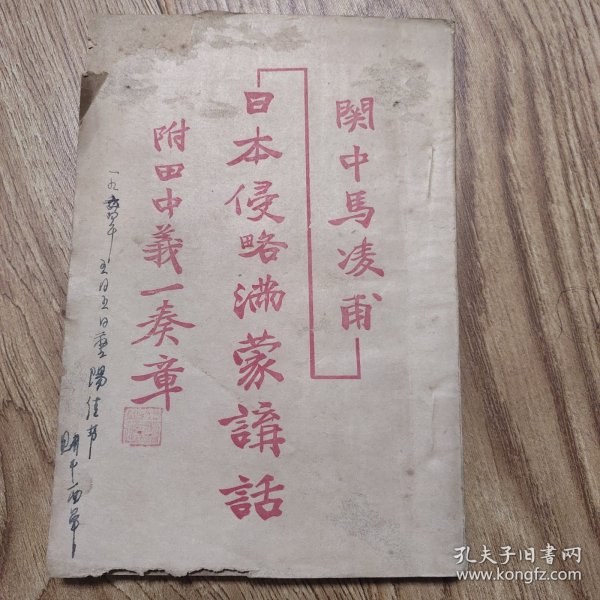 関中馬凌甫
日本侵略満蒙講話
附田中義一奏章
一九五四年五月五日
購于西單
孔夫子旧书网
www.kongfz.com